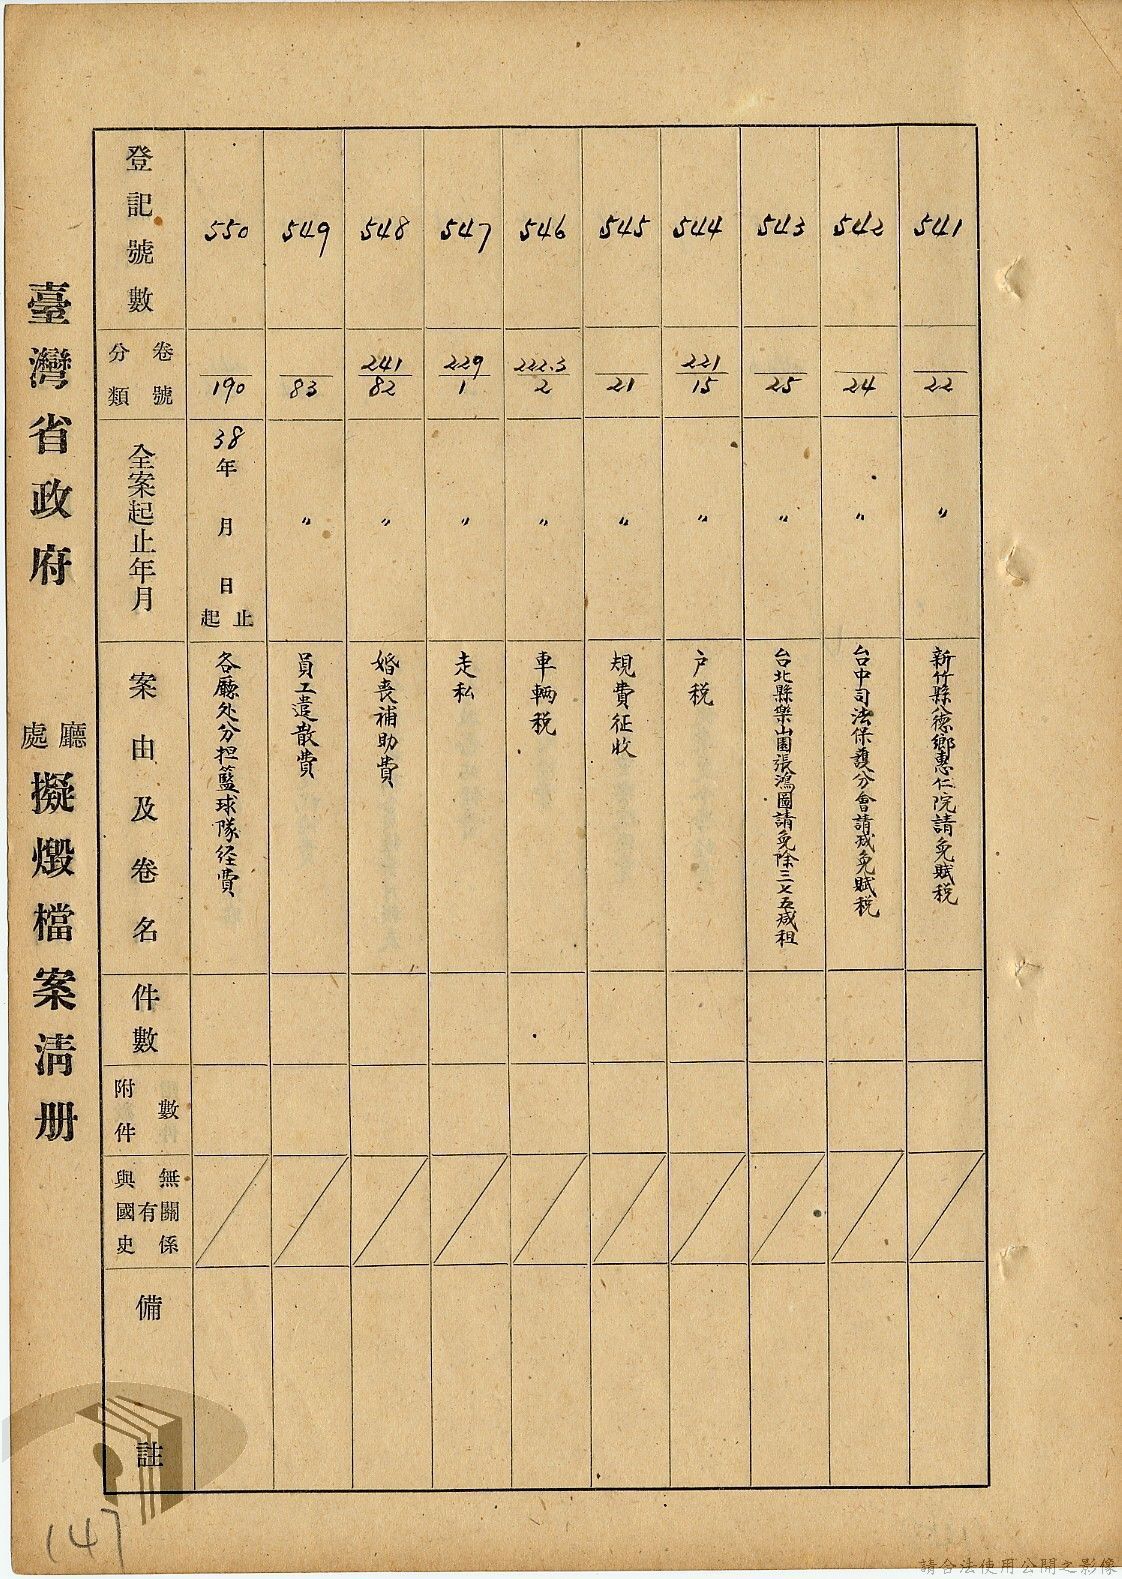 臺灣省政府 廳處 擬燬檔案清册
登記號數
分類 卷號
全案起止年月
案由及卷名
件數
附件數
與國史有無關係
備註
541
22
〃
新竹縣八德鄉惠仁院請免賦稅
542
24
〃
台中司法保護分會請减免賦稅
543
25
〃
台北縣樂山園張鴻圖請免除三七五减租
544
221
15
〃
户稅
545
21
〃
規費征收
546
222.3
2
〃
車輛稅
547
229
1
〃
走私
548
241
82
〃
婚喪補助費
549
83
〃
員工遣散費
550
190
38年 月 日起止
各廳处分担籃球隊经費
147
請合法使用公開之影像